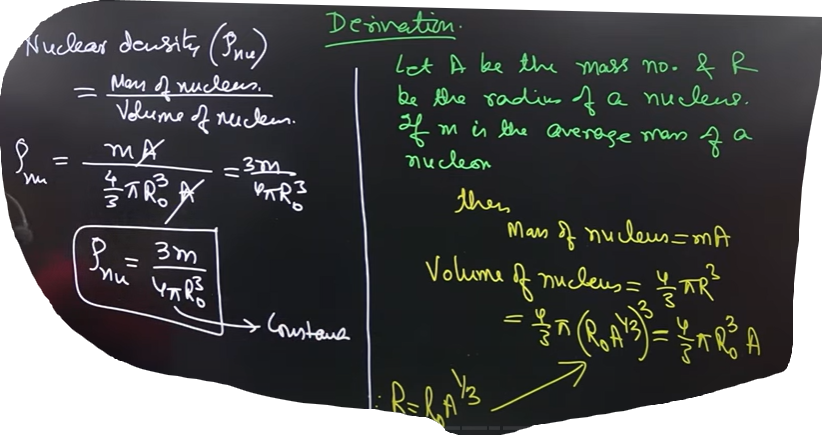 Derivation.
Nuclear density (ρnu)
= Mass of nucleus. / Volume of nucleus.
ρnu = mA / (4/3 πR₀³ A) = 3m / 4πR₀³
ρnu = 3m / 4πR₀³
→ Constant
Let A be the mass no. & R
be the radius of a nucleus.
If m is the average mass of a
nucleon
then
Mass of nucleus = mA
Volume of nucleus = 4/3 πR³
= 4/3 π (R₀A^1/3)³ = 4/3 πR₀³ A
∴ R = R₀A^1/3